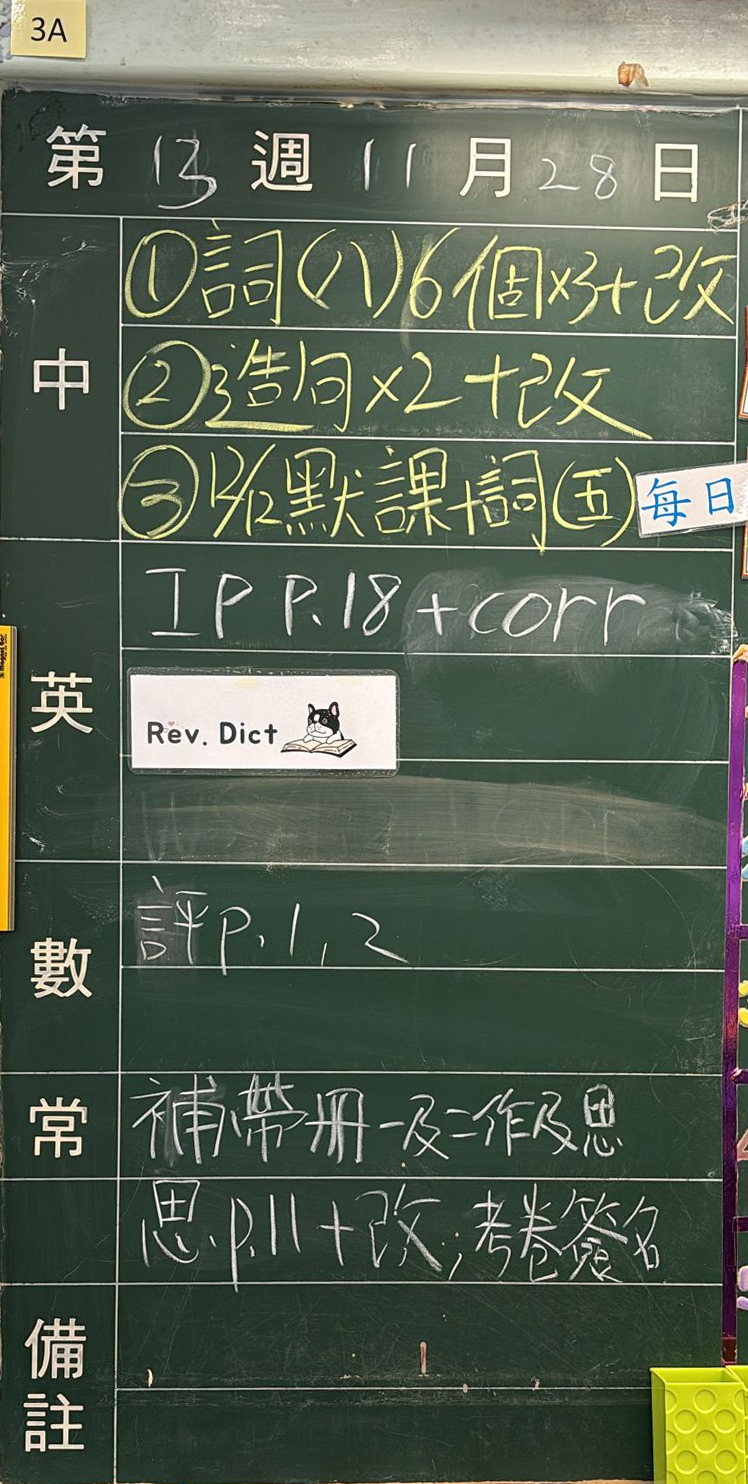 3A
第 13 週 11 月 28 日
中
①詞(八)6個×3+改
②造句×2+改
③12/12默課+詞(五)
每日
英
IP P.18 +corr
Rev. Dict
數
評P.1,2
常
補帶冊一及二作及思
思.P.11+改;考卷簽名
備註